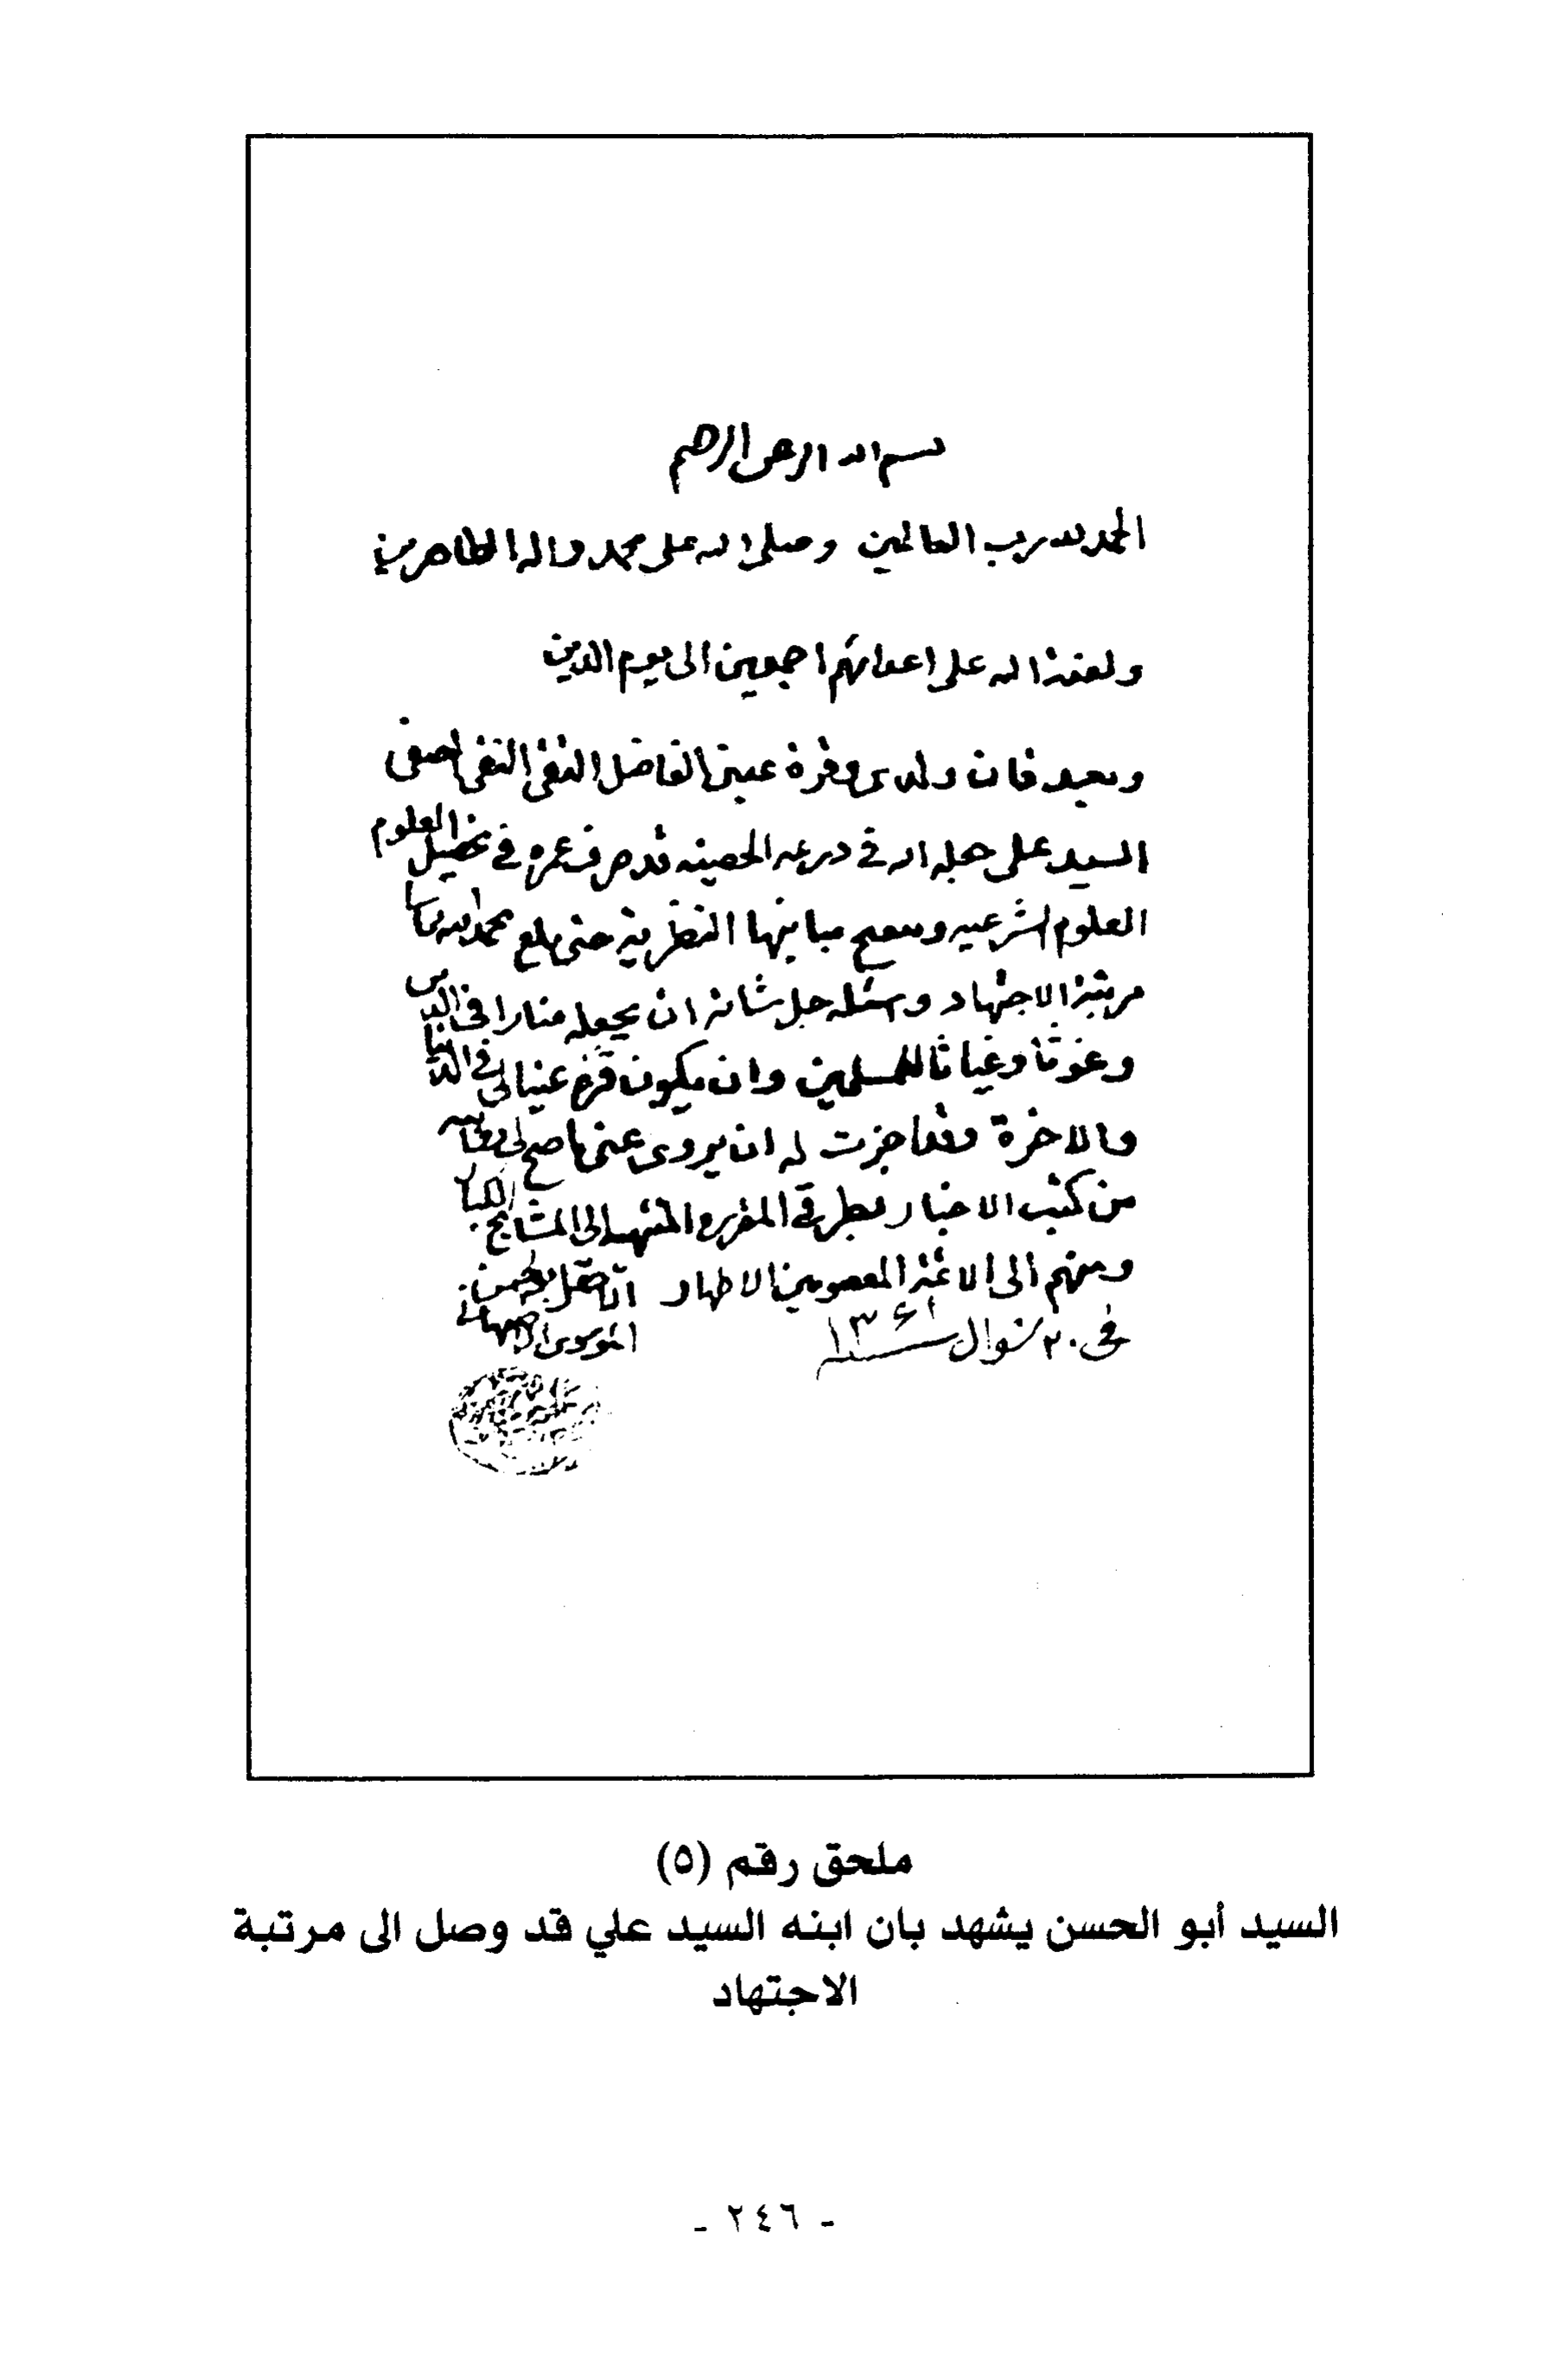 بسم الله الرحمن الرحيم
الحمد لله رب العالمين وصلى الله على محمد واله الطاهرين
ولعنة الله على اعدائهم اجمعين الى يوم الدين
وبعد فان ولدى وقرة عينى الفاضل التقى النقى الصفى
السيد على جعله الله في درعه الحصينه قد صرف عمره في تحصيل العلوم
العلوم الشرعيه وتنقيح مبانيها النظرية حتى بلغ بحمد الله تعالى
مرتبة الاجتهاد واسئله جل شانه ان يجعله منارا في الدين
وعونا وغياثا للمسلمين وان يكون قرة عينا لى في الدنيا
والاخرة وقد اجزت له ان يروى عنى ما صح لى روايته
من كتب الاخبار بطرقى المقرره المنتهية الى المشائخ الكبار
ومنهم الى الائمة المعصومين الاطهار الاحقر ابو الحسن
الموسوى الاصفهانى
في ٢٠ شوال ١٣٦١
ملحق رقم (٥)
السيد أبو الحسن يشهد بان ابنه السيد علي قد وصل الى مرتبة
الاجتهاد
- ٢٤٦ -